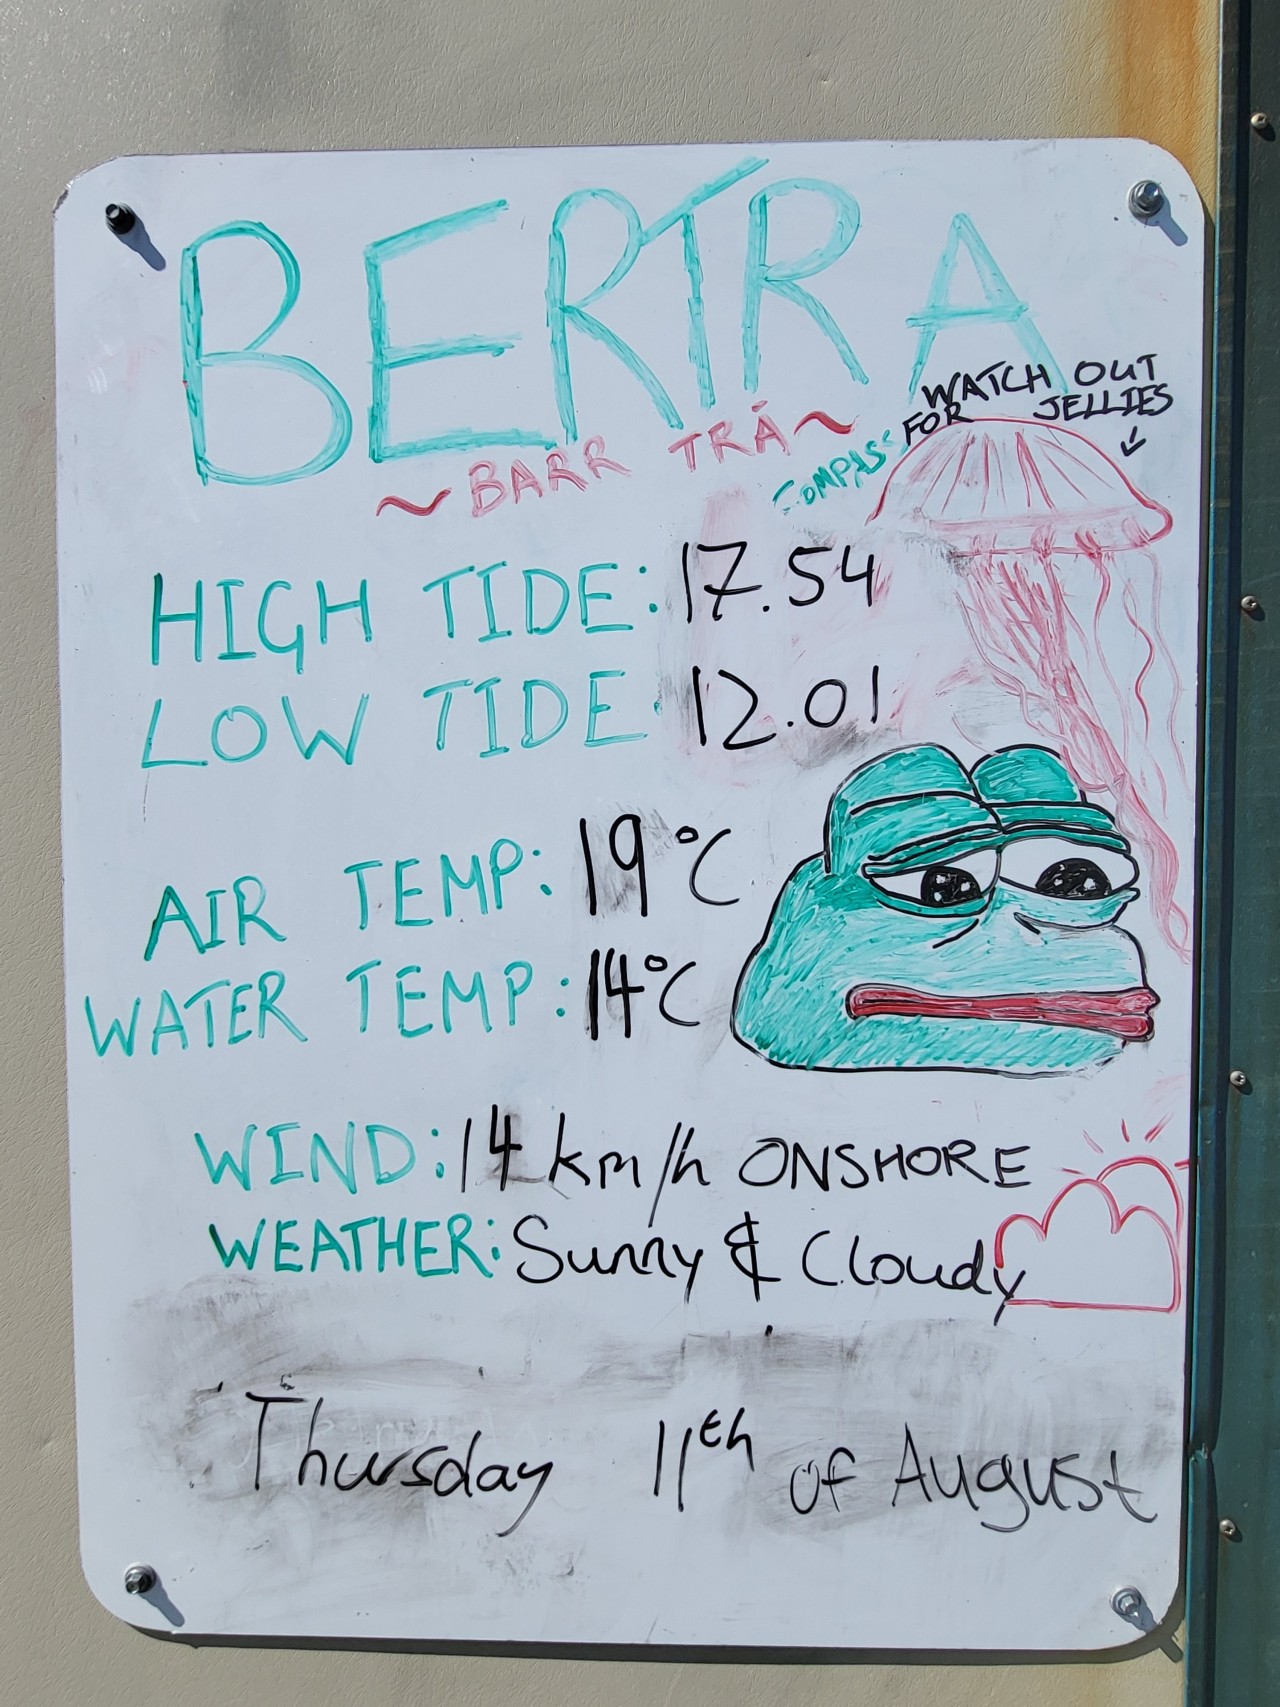 BERTRA
~ BARR TRÁ ~
WATCH OUT
FOR JELLIES
COMPASS
HIGH TIDE: 17.54
LOW TIDE: 12.01
AIR TEMP: 19°C
WATER TEMP: 14°C
WIND: 14 km/h ONSHORE
WEATHER: Sunny & Cloudy
Thursday 11th of August